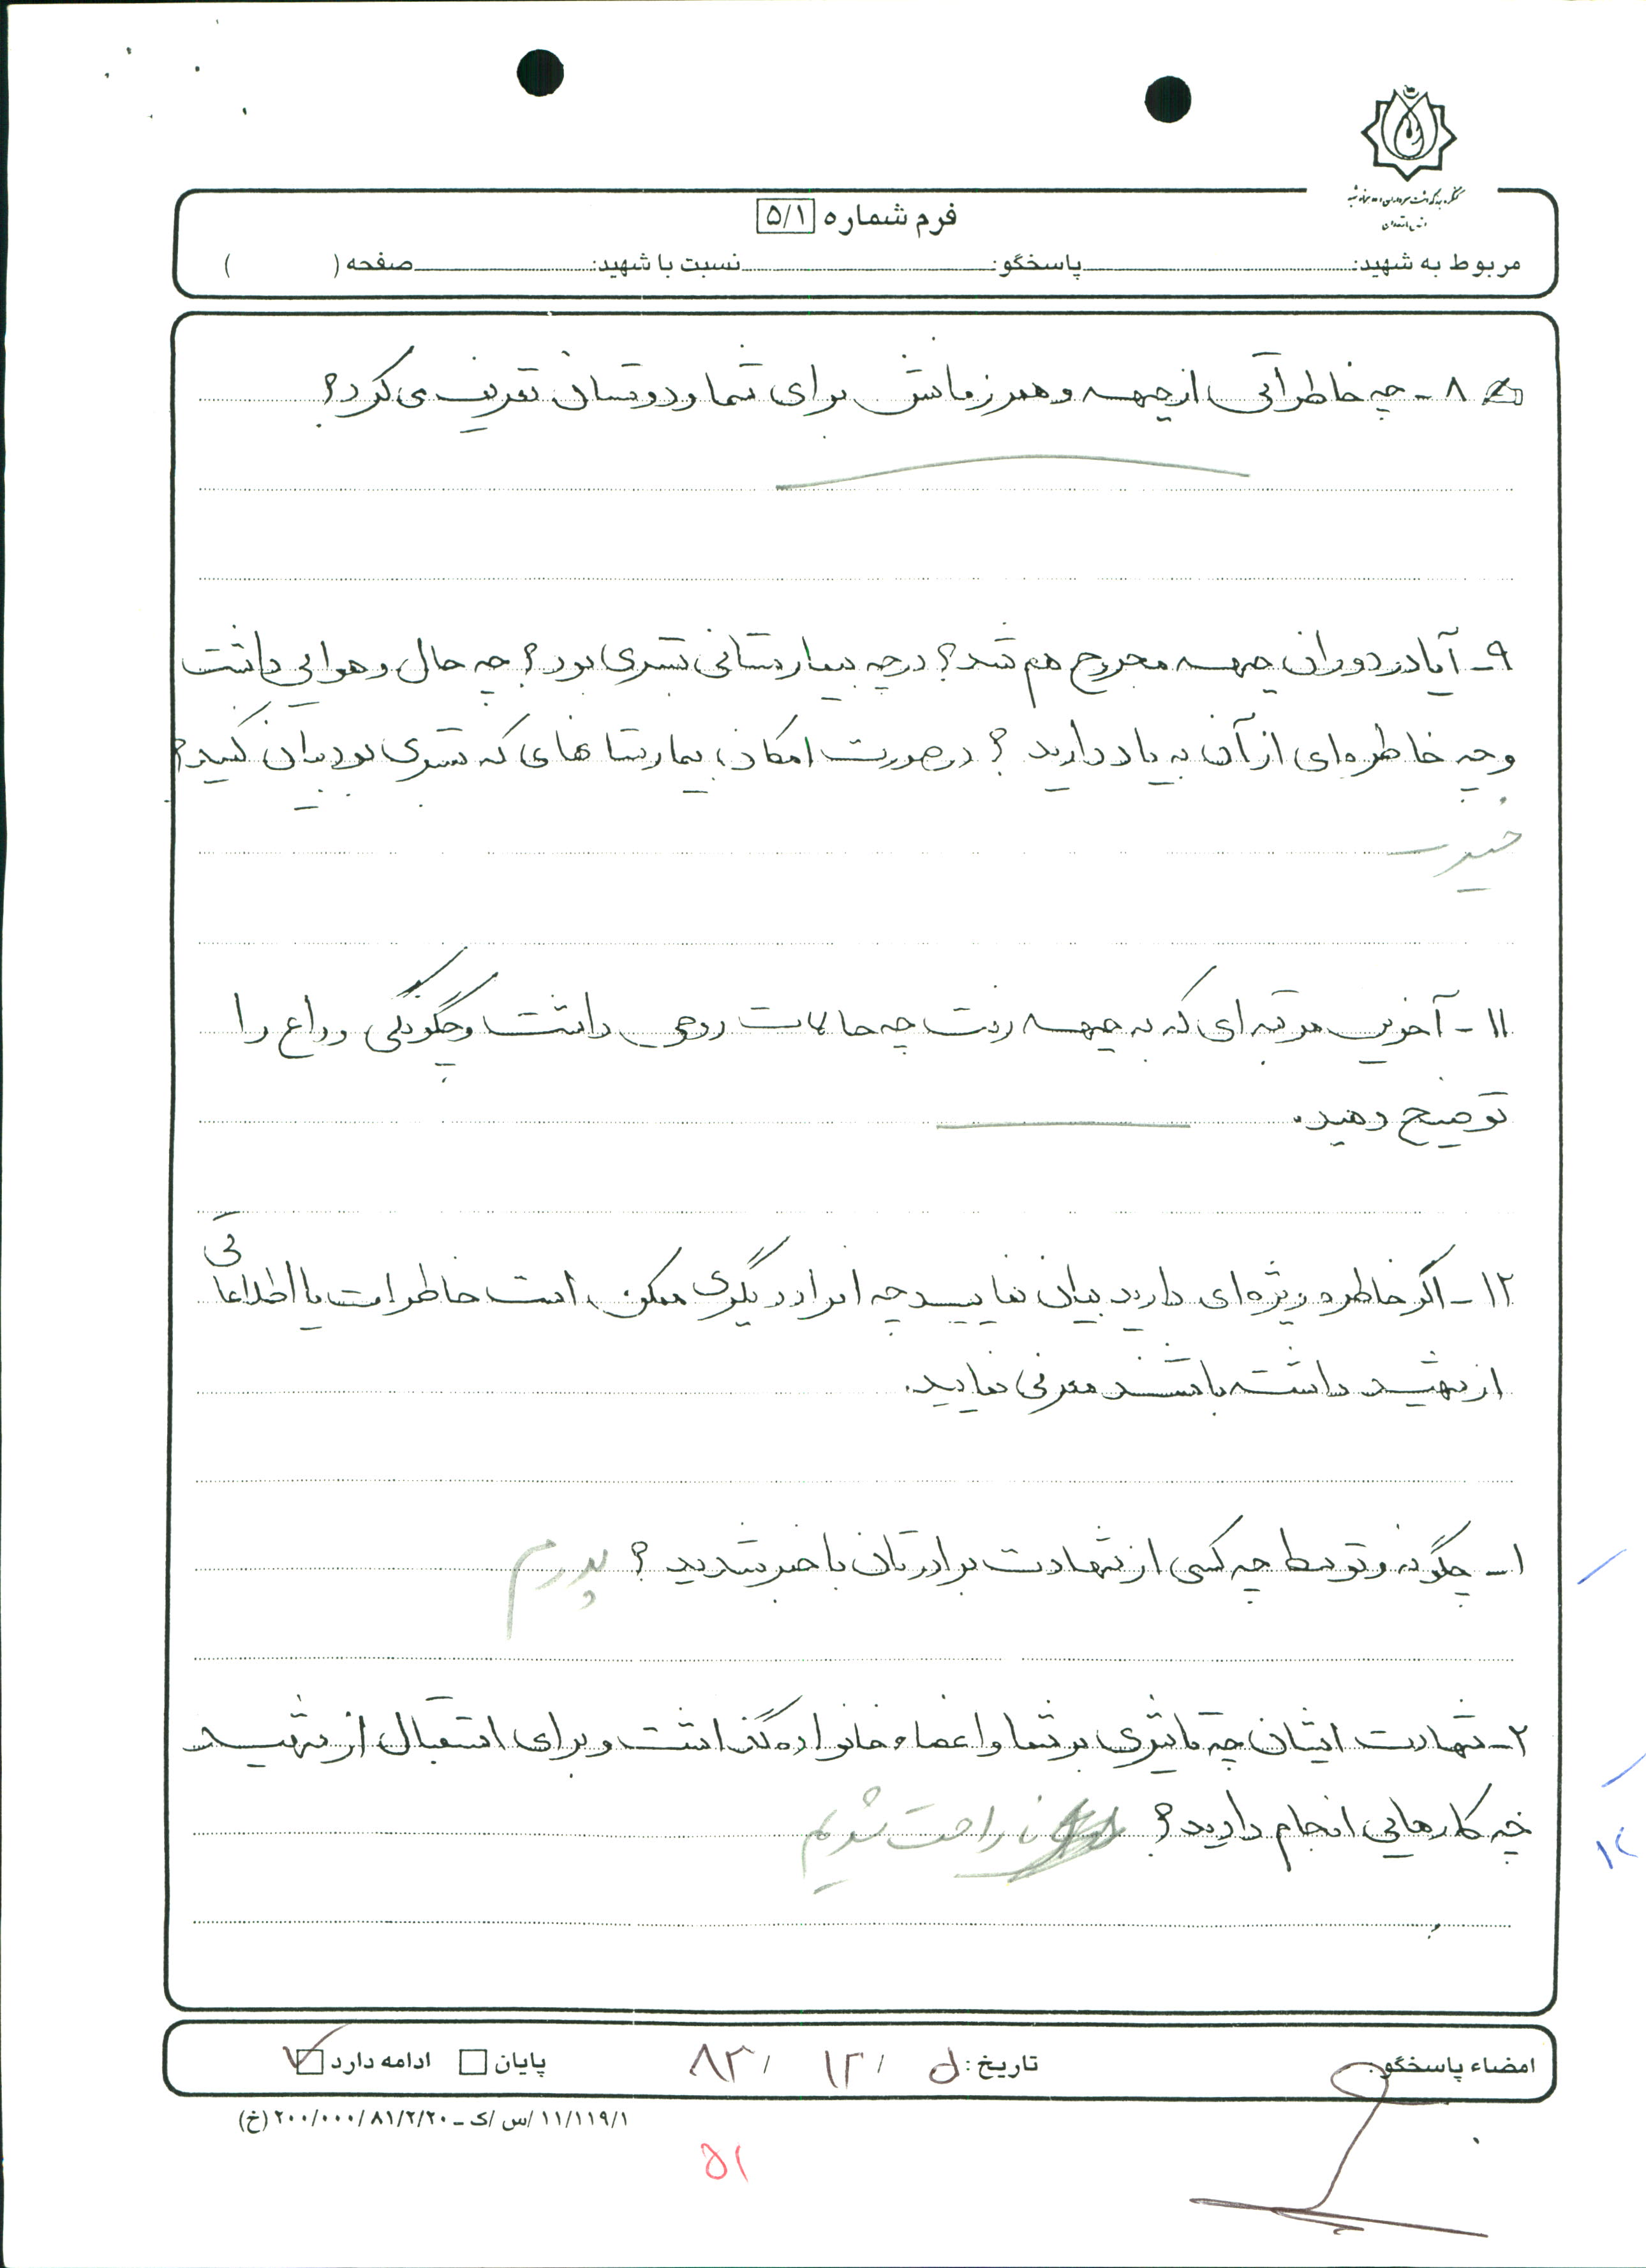 فرم شماره ۵/۱
مربوط به شهید: پاسخگو: نسبت با شهید: صفحه ( )
۸ - چه خاطراتی از جبهه و همرزمانش برای شما و دوستان تعریف می کرد؟
۹- آیا در دوران جبهه مجروح هم شد؟ در چه بیمارستانی بستری بود؟ چه حال و هوایی داشت
و چه خاطره‌ای از آن به یاد دارید ؟ در صورت امکان بیمارستا نهای که بستری بود بیان کنید؟
خیر
۱۱ - آخرین مرتبه ای که به جبهه رفت چه حالات روحی داشت و چگونگی وداع را
توضیح دهید.
۱۲ - اگر خاطره ویژه‌ای دارید بیان نمایید چه افراد دیگری ممکن است خاطرات یا اطلاعاتی
از شهید داشته باشند معرفی نمایید.
۱- چگونه و توسط چه کسی از شهادت برادرتان با خبر شدید ؟ پدرم
۲- شهادت ایشان چه تاثیری بر شما و اعضاء خانواده گذاشت و برای استقبال از شهید
چه کارهایی انجام دادید؟ ناراحت شدیم
امضاء پاسخگو: تاریخ: ۵ / ۱۲ / ۸۳ پایان ادامه دارد
۱۱/۱۱۹/۱ /س /ک - ۲۰۰/۰۰۰/۸۱/۲/۲۰ (خ)
۵۱